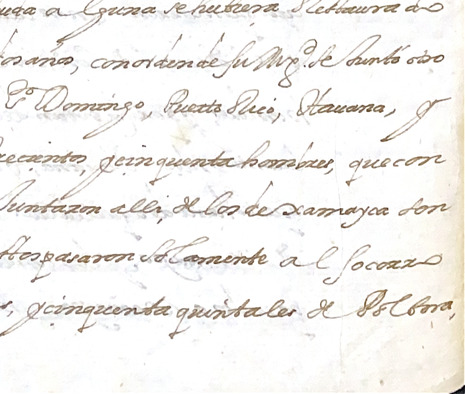 alguna se hubiera Restaurado
os años, con orden de su Mgd. se Juntó otro
Sto Domingo, Puerto Rico, Havana, y
recientos, y cinquenta hombres, que con
Juntaron alli, de los de xamayca con
stos pasaron Solamente al Socorro
s, y cinquenta quintales de Polbora,